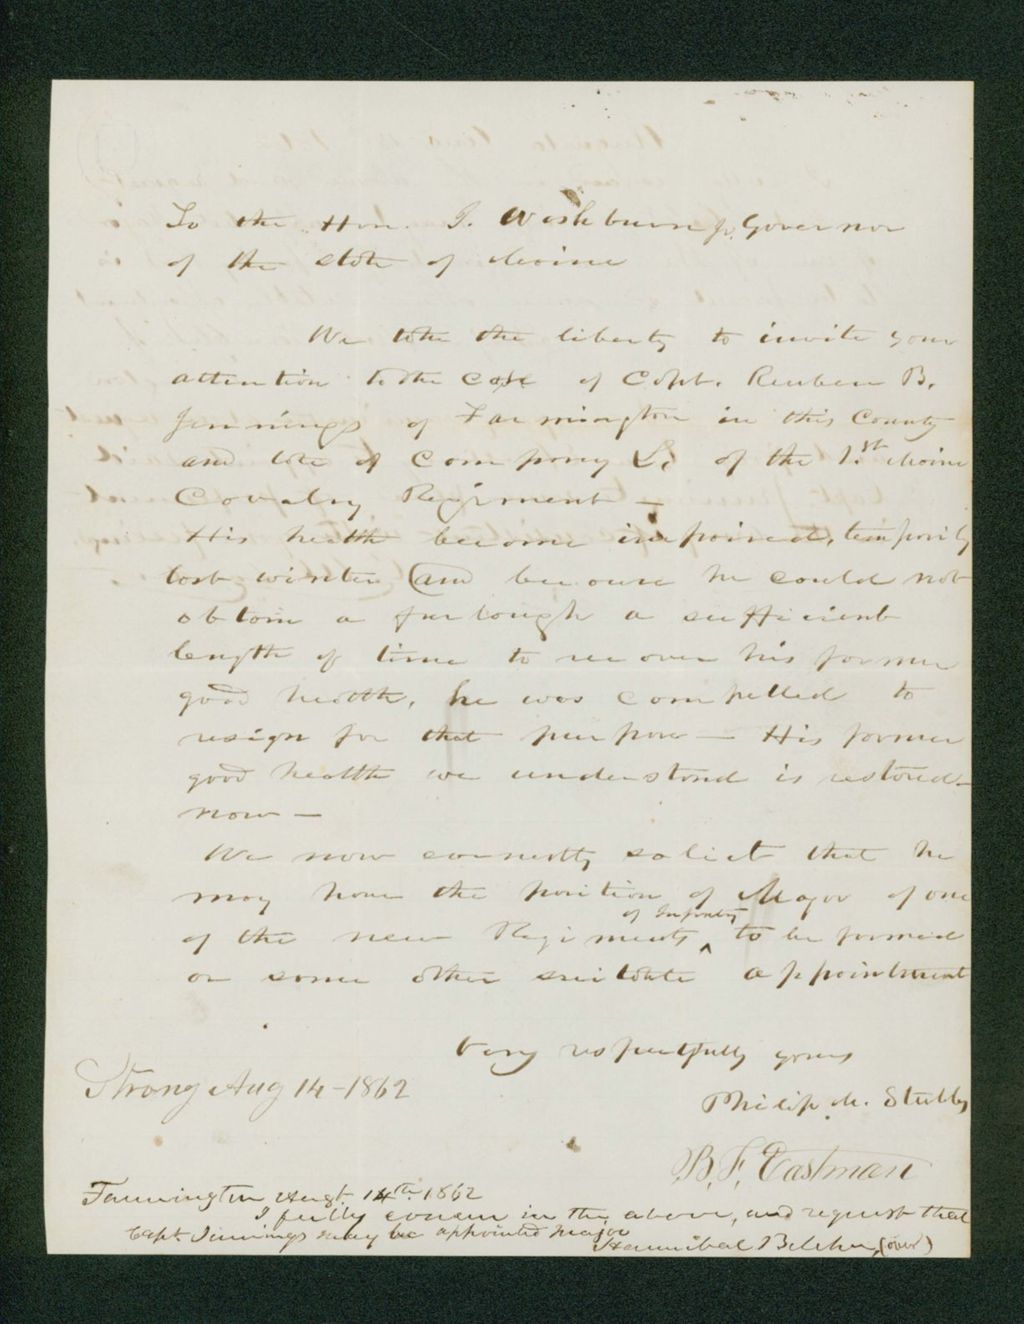 To the Hon. I. Washburn Jr. Governor
of the state of Maine
We take the liberty to invite your
attention to the case of Capt. Reuben B.
Jennings of Farmington in this County
and late of Company L, of the 1.st Maine
Cavalry Regiment —
His health became impaired, temporily
last winter (and because he could not
obtain a furlough a sufficient
length of time to recover his former
good health, he was compelled to
resign for that purpose — His former
good health we understand is restored
now —
We now earnestly solicit that he
may have the position of Major of one
of the new Regiments ^ of Infantry to be formed
or some other suitable appointment
Very respectfully yours
Strong Aug 14 - 1862
Philip M. Stubbs
B. F. Eastman
Farmington Augt. 14th 1862
I fully concur in the above, and request that
Capt Jennings may be appointed Major
Hannibal Belcher (over)